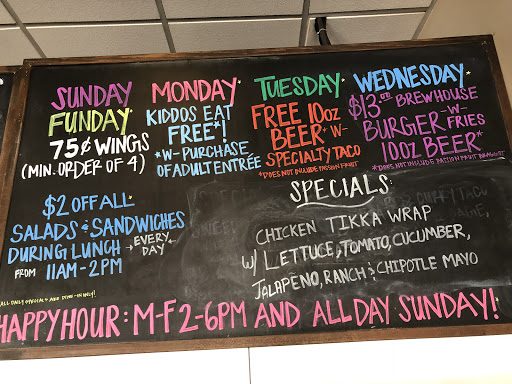 SUNDAY
FUNDAY
75¢ WINGS
(MIN. ORDER OF 4)
MONDAY
KIDDOS EAT
FREE*!
*W- PURCHASE
OF ADULT ENTRÉE
TUESDAY
FREE 10oz
BEER* W-
SPECIALTY TACO
*DOES NOT INCLUDE PASSION FRUIT
WEDNESDAY
$13 BREWHOUSE
BURGER -W- FRIES
10OZ BEER*
*DOES NOT INCLUDE PASION FRUIT
$2 OFF ALL
SALADS & SANDWICHES
DURING LUNCH →EVERY DAY←
FROM 11AM-2PM
ALL DAILY SPECIALS ARE DINE-IN ONLY!
SPECIALS:
CHICKEN TIKKA WRAP
W/ LETTUCE, TOMATO, CUCUMBER,
JALAPENO, RANCH & CHIPOTLE MAYO
HAPPY HOUR: M-F 2-6PM AND ALL DAY SUNDAY!